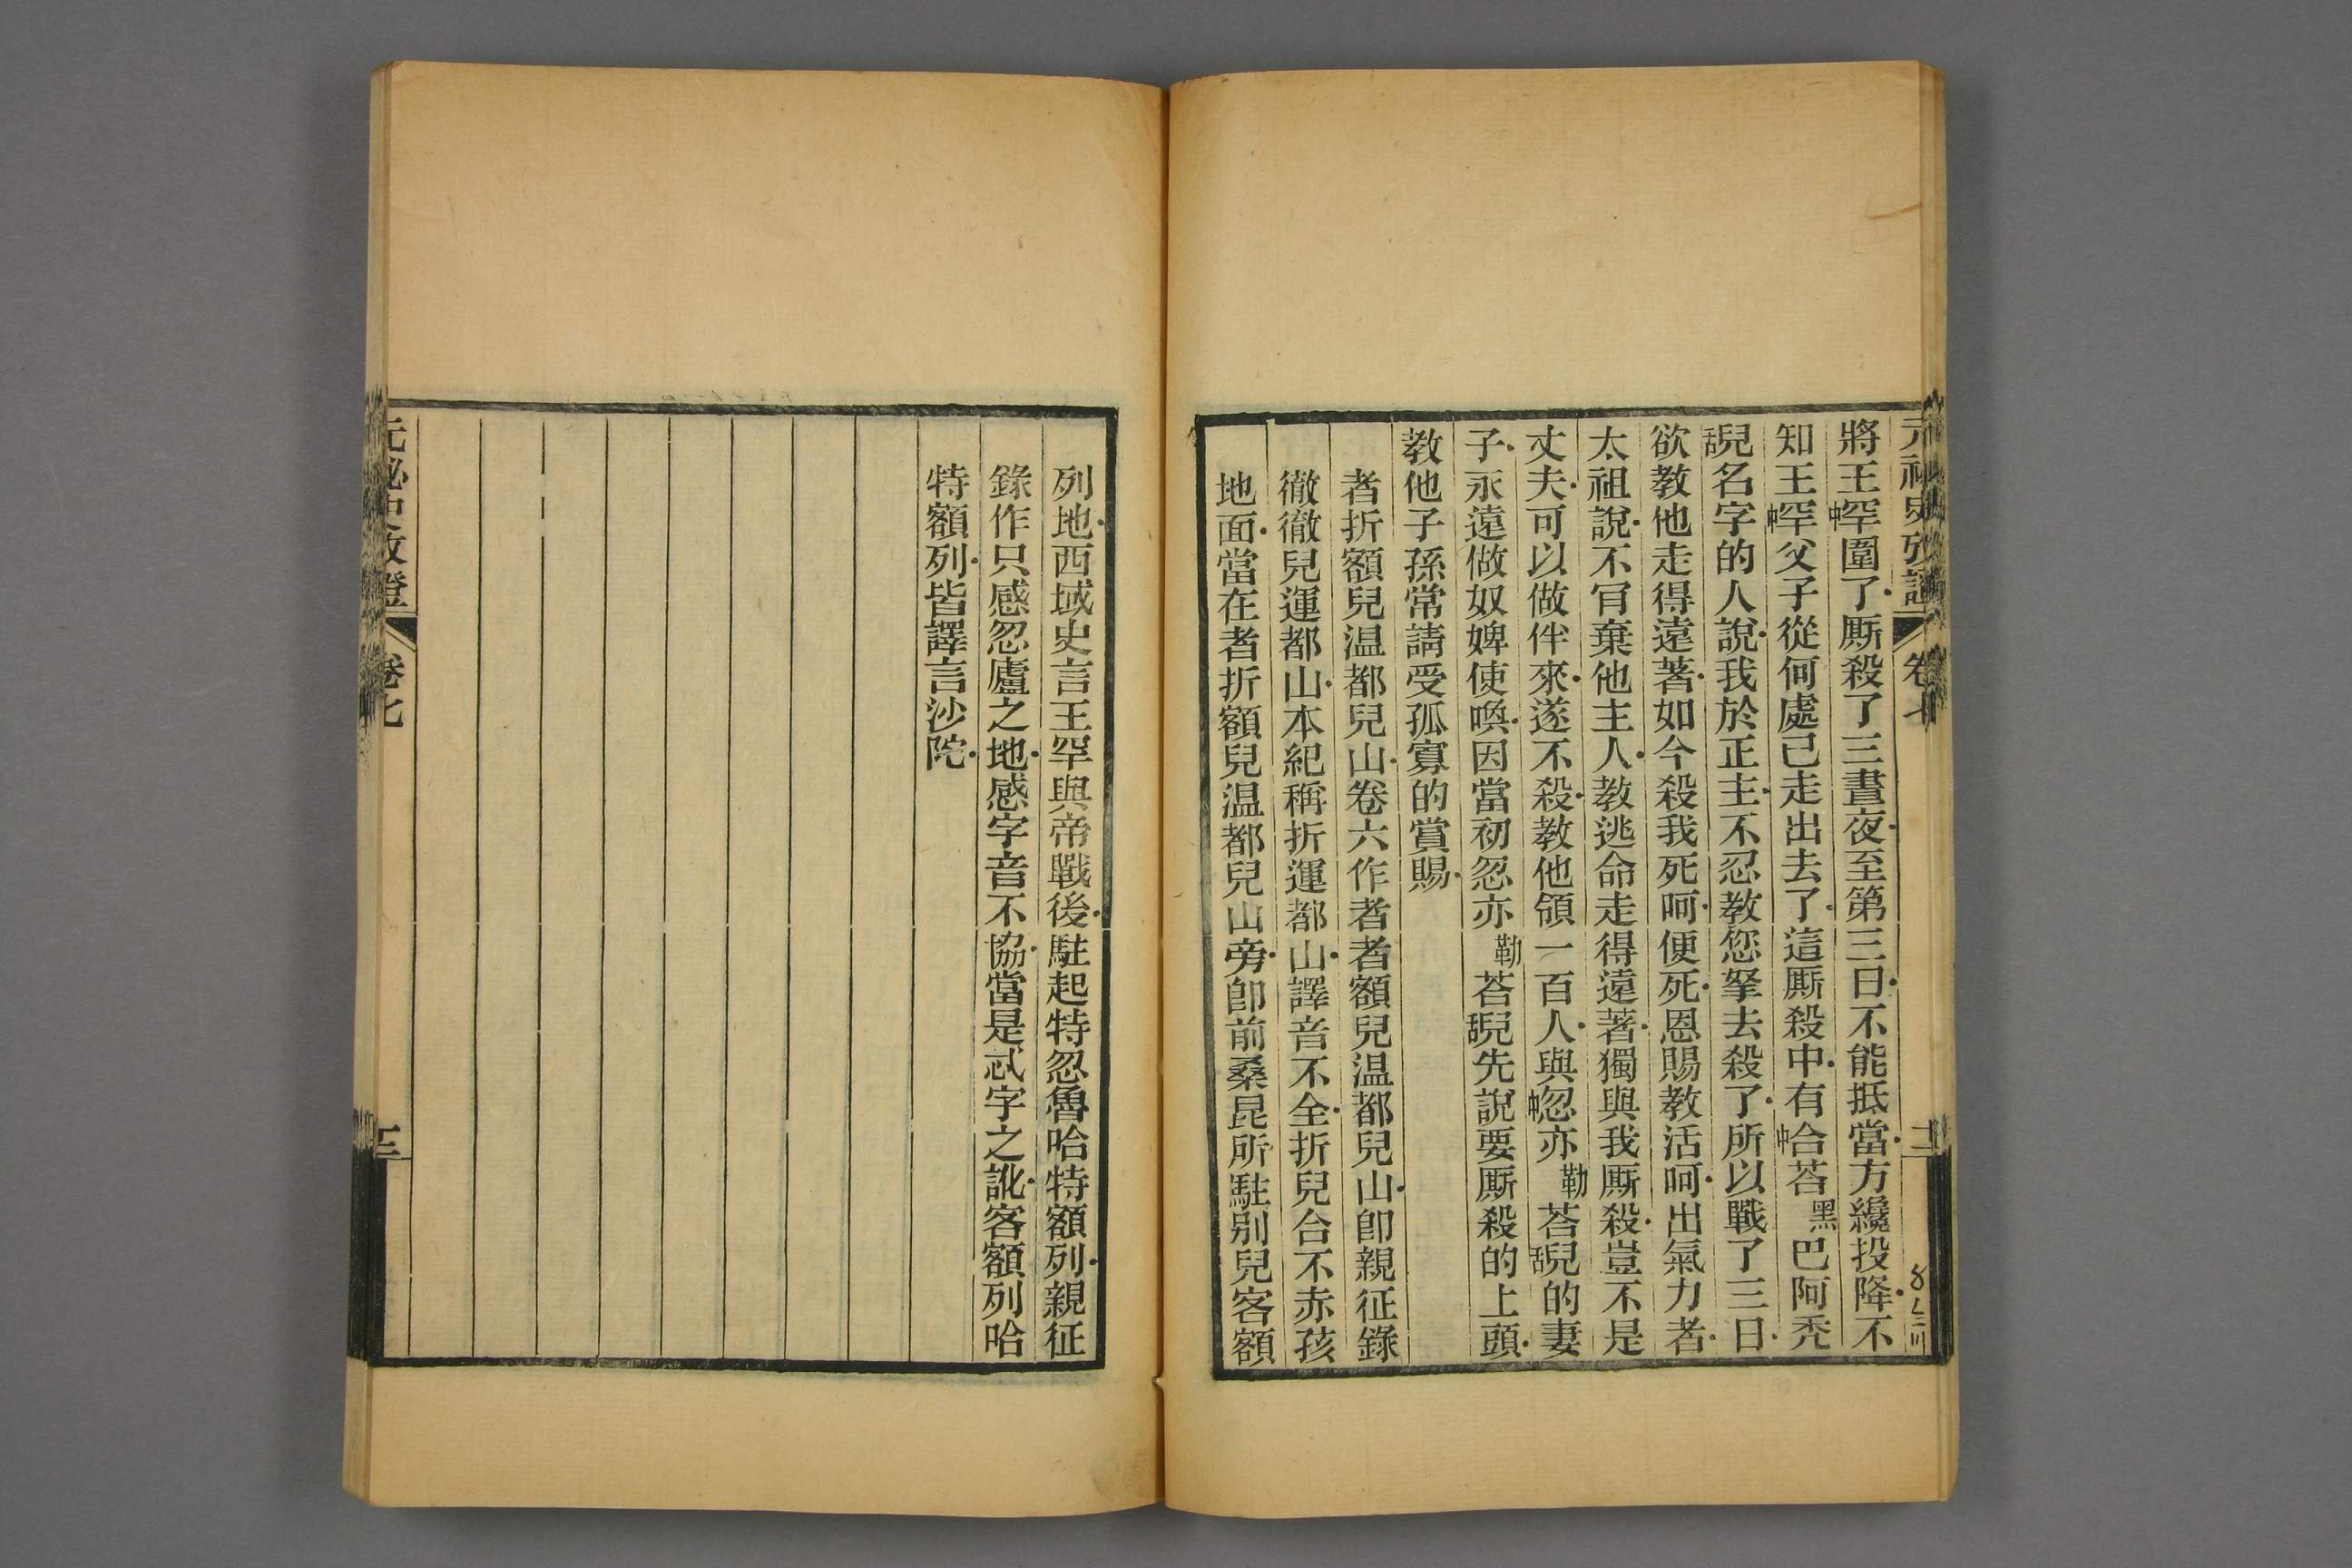 元祕史攷證 卷七 二
將王中罕圍了厮殺了三晝夜至第三日不能抵當方纔投降不
知王中罕父子從何處已走出去了這厮殺中有中合荅黑巴阿禿
舌兒名字的人說我於正主不忍教您拏去殺了所以戰了三日
欲教他走得遠著如今殺我死呵便死恩賜教活呵出氣力者
太祖說不肎棄他主人教逃命走得遠著獨與我厮殺豈不是
丈夫可以做伴來遂不殺教他領一百人與中忽亦勒荅舌兒的妻
子永遠做奴婢使喚因當初忽亦勒荅舌兒先說要厮殺的上頭
教他子孫常請受孤寡的賞賜
者折額兒温都兒山卷六作者者額兒温都兒山卽親征錄
徹徹兒運都山本紀稱折運都山譯音不全折兒合不赤孩
地面當在者折額兒温都兒山旁卽前桑昆所駐别兒客額
列地西域史言王罕與帝戰後駐起特忽魯哈特額列親征
錄作只感忽盧之地感字音不協當是忒字之訛客額列哈
特額列皆譯言沙陀
元祕史攷證 卷七 三